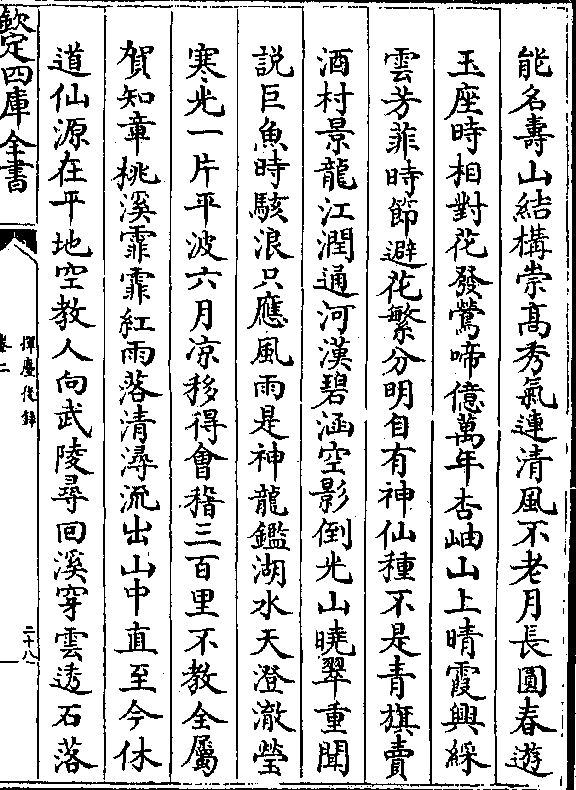 能名壽山結構崇髙秀氣連清風不老月長圓春遊
玉座時相對花發鶯啼億萬年杏岫山上晴霞興綵
雲芳菲時節避花繁分明自有神仙種不是青旗賣
酒村景龍江潤通河漢碧涵空影倒光山曉翠重聞
説巨魚時駭浪只應風雨是神龍鑑湖水天澄澈瑩
寒光一片平波六月凉移得會稽三百里不教全屬
賀知章桃溪霏霏紅雨落清潯流出山中直至今休
道仙源在平地空教人向武陵尋回溪穿雲透石落
欽定四庫全書
揮麈後録
卷二
二十八